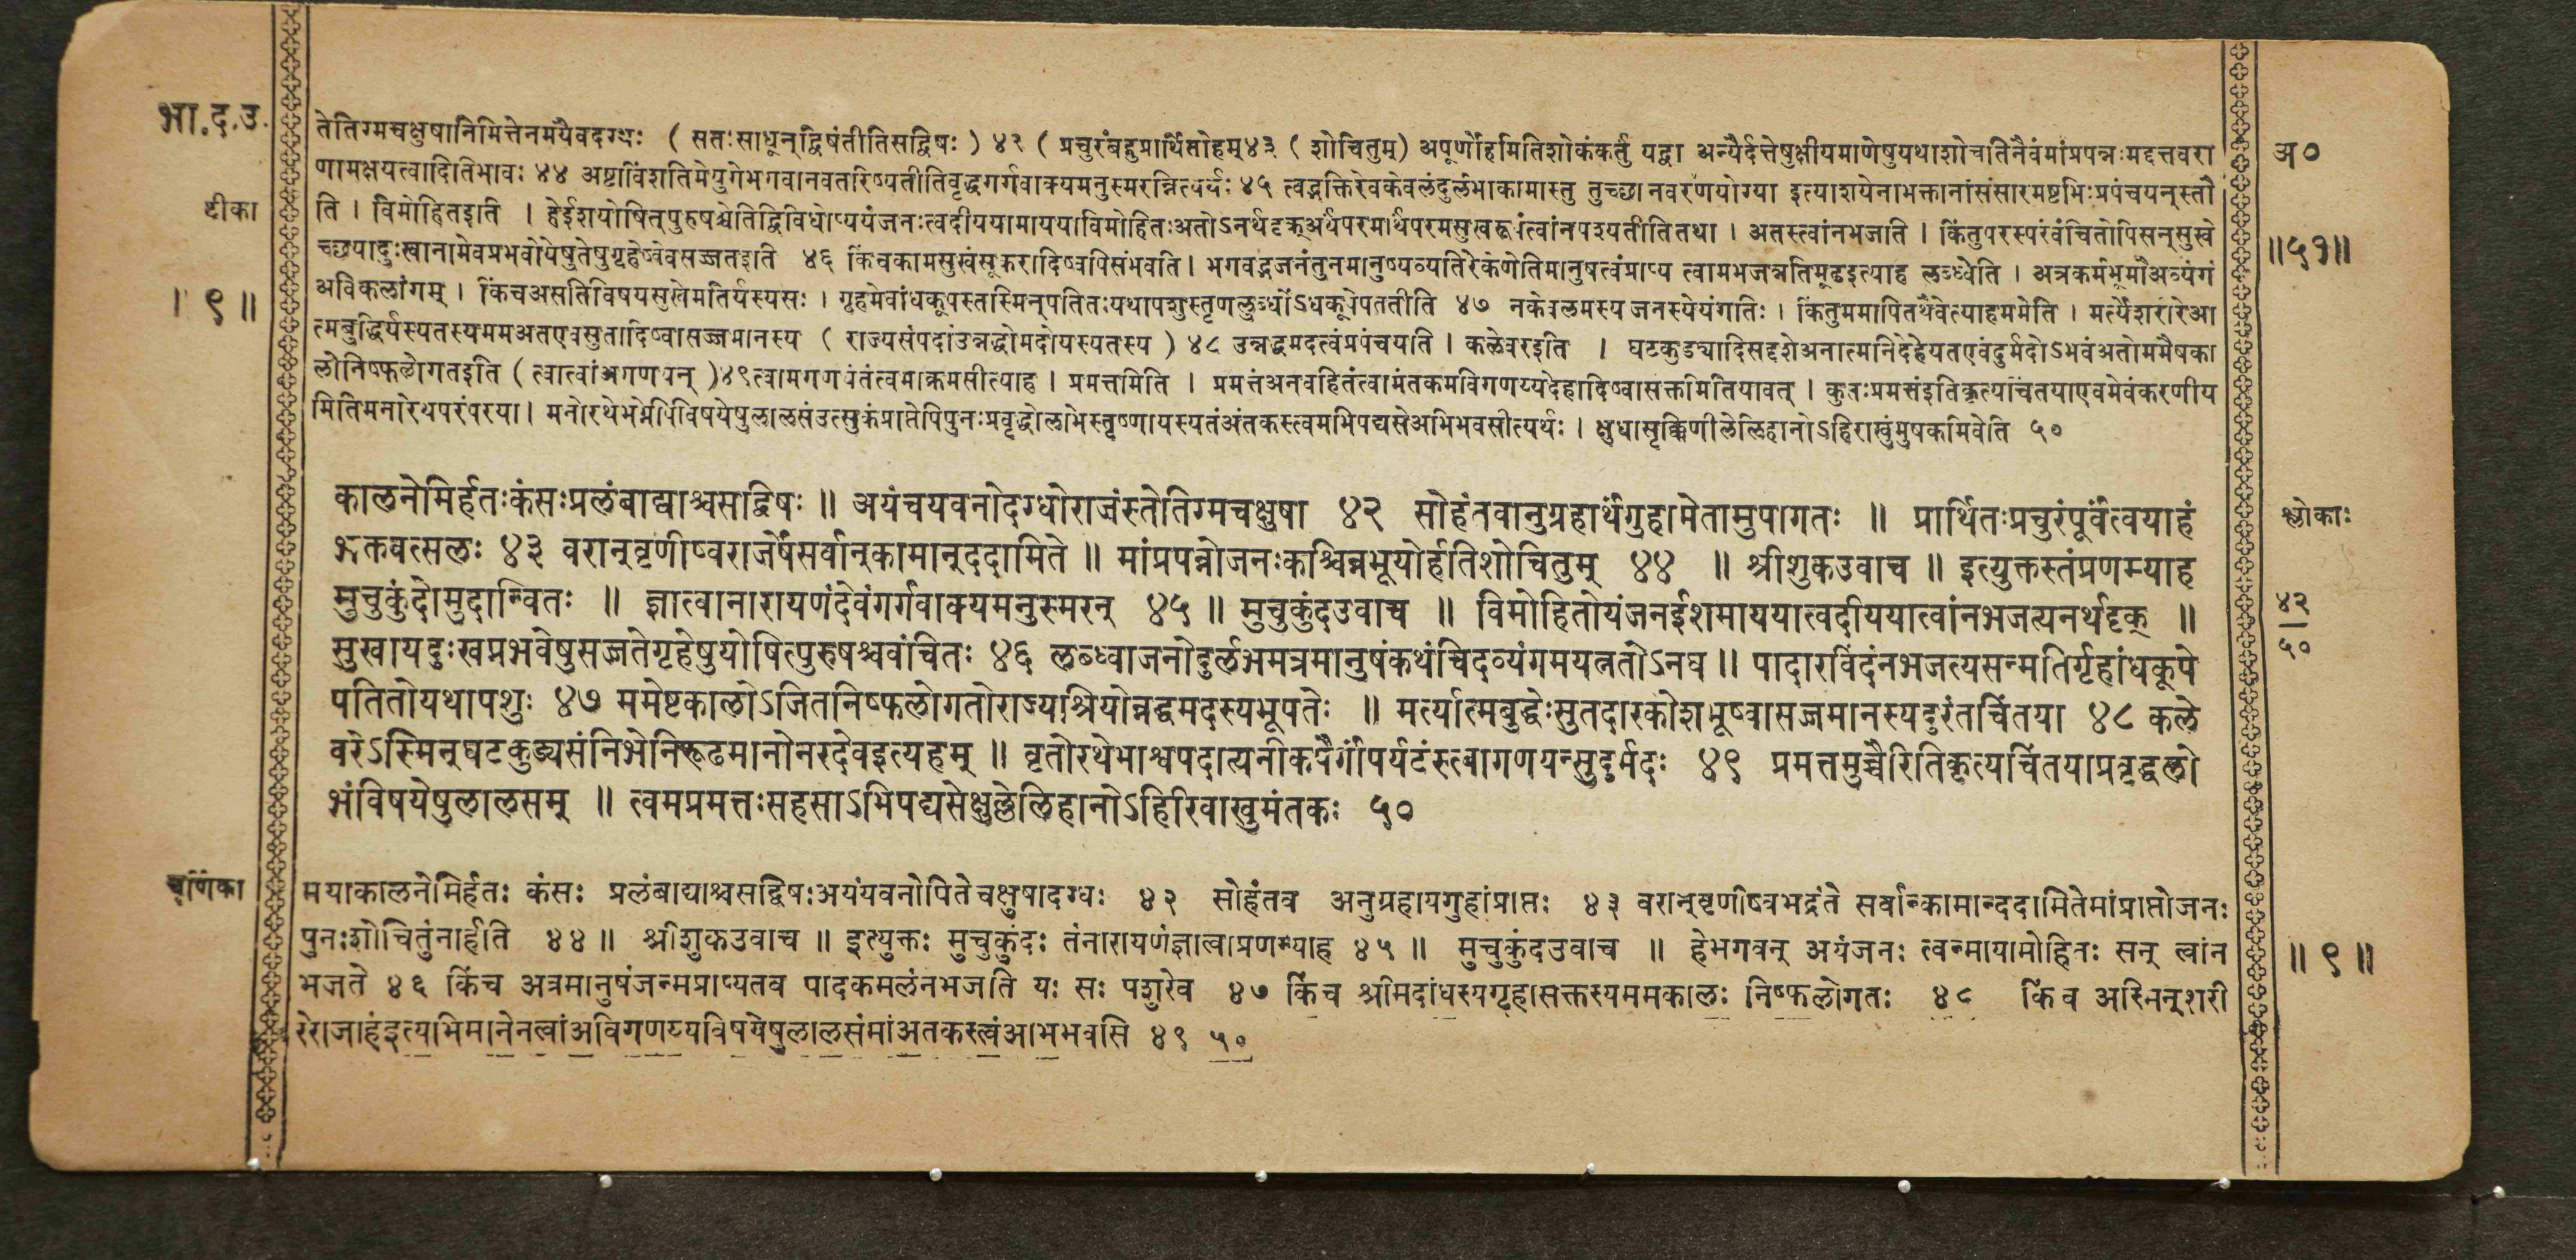 भा.द.उ.
तेतिग्मचक्षुषानिमित्तेनमयैवदग्धः ( सतःसाधून्द्विषंतीतिसद्विषः ) ४२ ( प्रचुरंबहुप्रार्थितोहम्४३ ( शोचितुम्) अपूर्णोहमितिशोकंकर्तुं यद्वा अन्यैर्दत्तेषुक्षीयमाणेषुयथाशोचतिनैवंमांप्रपन्नःमद्दत्तवरा
अ०
णामक्षयत्वादितिभावः ४४ अष्टाविंशतिमेयुगेभगवानवतरिष्यतीतिवृद्धगर्गवाक्यमनुस्मरन्नित्यर्थः ४५ त्वद्भक्तिरेवकेवलंदुर्लभाकामास्तु तुच्छानवरणयोग्या इत्याशयेनाभक्तानांसंसारमष्टभिःप्रपंचयन्स्तौ
टीका
ति । विमोहितइति । हेईशयोषित्पुरुषश्चेतिद्विविधोप्ययंजनःत्वदीययामाययाविमोहितःअतोऽनर्थदृक्अर्थपरमार्थपरमसुखरूपंत्वांनपश्यतीतितथा । अतस्त्वांनभजति । किंतुपरस्परंवंचितोपिसन्सुखे
च्छयादुःखानामेवप्रभवोयेषुतेषुगृहेष्वेवसज्जतइति ४६ किंचकामसुखंसूकरादिष्वपिसंभवति । भगवद्भजनंतुनमानुष्यव्यतिरेकेणेतिमानुषत्वंप्राप्य त्वामभजन्नतिमूढइत्याह लब्ध्वेति । अत्रकर्मभूमौअव्यंगं
॥५१॥
। ९ ॥
अविकलांगम् । किंचअसतिविषयसुखेमतिर्यस्यसः । गृहमेवांधकूपस्तस्मिन्पतितःयथापशुस्तृणलुब्धोंऽधकूपेपततीति ४७ नकेवलमस्य जनस्येयंगतिः । किंतुममापितथैवेत्याहममेति । मर्त्येशरीरेआ
त्मबुद्धिर्यस्यतस्यममअतएवसुतादिष्वासज्जमानस्य ( राज्यसंपदांउन्नद्धोमदोयस्यतस्य ) ४८ उन्नद्धमदत्वंप्रपंचयति । कळेवरइति । घटकुड्यादिसदृशेअनात्मनिदेहेयतएवंदुर्मदोऽभवंअतोममैषका
लोनिष्फळोगतइति ( त्वात्वांअगणयन् )४९त्वामगणयंतंत्वमाक्रमसीत्याह । प्रमत्तमिति । प्रमत्तंअनवहितंत्वामंतकमविगणय्यदेहादिष्वासक्तमितियावत् । कुतःप्रमत्तंइतिकृत्यचिंतयाएवमेवंकरणीय
मितिमनोरथपरंपरया । मनोरथेभग्नेपिविषयेषुलालसंउत्सुकंप्राप्तेपिपुनःप्रवृद्धोलोभस्तृष्णायस्यतंअंतकस्त्वमभिपद्यसेअभिभवसीत्यर्थः । क्षुधासृक्किणीलेलिहानोऽहिराखुंमुषकमिवेति ५०
कालनेमिर्हतःकंसःप्रलंबाद्याश्चसद्विषः ॥ अयंचयवनोदग्धोराजंस्तेतिग्मचक्षुषा ४२ सोहंतवानुग्रहार्थंगुहामेतामुपागतः ॥ प्रार्थितःप्रचुरंपूर्वंत्वयाहं
श्लोकाः
भक्तवत्सलः ४३ वरान्वृणीष्वराजर्षेसर्वान्कामान्ददामिते ॥ मांप्रपन्नोजनःकश्चिन्नभूयोर्हतिशोचितुम् ४४ ॥ श्रीशुकउवाच ॥ इत्युक्तस्तंप्रणम्याह
मुचुकुंदोमुदान्वितः ॥ ज्ञात्वानारायणंदेवंगर्गवाक्यमनुस्मरन् ४५ ॥ मुचुकुंदउवाच ॥ विमोहितोयंजनईशमाययात्वदीययात्वांनभजत्यनर्थदृक् ॥
४२
सुखायदुःखप्रभवेषुसज्जतेगृहेषुयोषित्पुरुषश्चवंचितः ४६ लब्ध्वाजनोदुर्लभमत्रमानुषंकथंचिदव्यंगमयत्नतोऽनघ ॥ पादारविंदंनभजत्यसन्मतिर्गृहांधकूपे
५०
पतितोयथापशुः ४७ ममेष्टकालोऽजितनिष्फलोगतोराज्यश्रियोन्नद्धमदस्यभूपतेः ॥ मर्त्यात्मबुद्धेःसुतदारकोशभूष्वासज्जमानस्यदुरंतचिंतया ४८ कले
वरेऽस्मिन्घटकुड्यसंनिभेनिरूढमानोनरदेवइत्यहम् ॥ वृतोरथेभाश्वपदात्यनीकपैर्गांपर्यटंस्त्वागणयन्सुदुर्मदः ४९ प्रमत्तमुच्चैरितिकृत्यचिंतयाप्रवृद्धलो
भंविषयेषुलालसम् ॥ त्वमप्रमत्तःसहसाऽभिपद्यसेक्षुल्लेलिहानोऽहिरिवाखुमंतकः ५०
चूर्णिका
मयाकालनेमिर्हतः कंसः प्रलंबाद्याश्चसद्विषःअयंयवनोपितेचक्षुषादग्धः ४२ सोहंतव अनुग्रहायगुहांप्राप्तः ४३ वरान्वृणीष्वभद्रंते सर्वान्कामान्ददामितेमांप्राप्तोजनः
पुनःशोचितुंनार्हति ४४ ॥ श्रीशुकउवाच ॥ इत्युक्तः मुचुकुंदः तंनारायणंज्ञात्वाप्रणम्याह ४५ ॥ मुचुकुंदउवाच ॥ हेभगवन् अयंजनः त्वन्मायामोहितः सन् त्वांन
॥ ९ ॥
भजते ४६ किंच अत्रमानुषंजन्मप्राप्यतव पादकमलंनभजति यः सः पशुरेव ४७ किंच श्रीमदांधस्यगृहासक्तस्यममकालः निष्फलोगतः ४८ किंच अस्मिन्शरी
रेराजाहंइत्यभिमानेनत्वांअविगणय्यविषयेषुलालसंमांअंतकस्त्वंअभिभवसि ४९ ५०